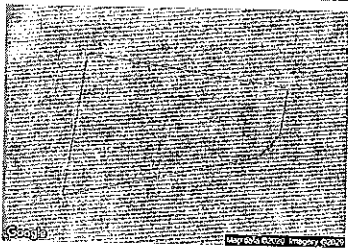 Google
Map data ©2020 Imagery ©2020